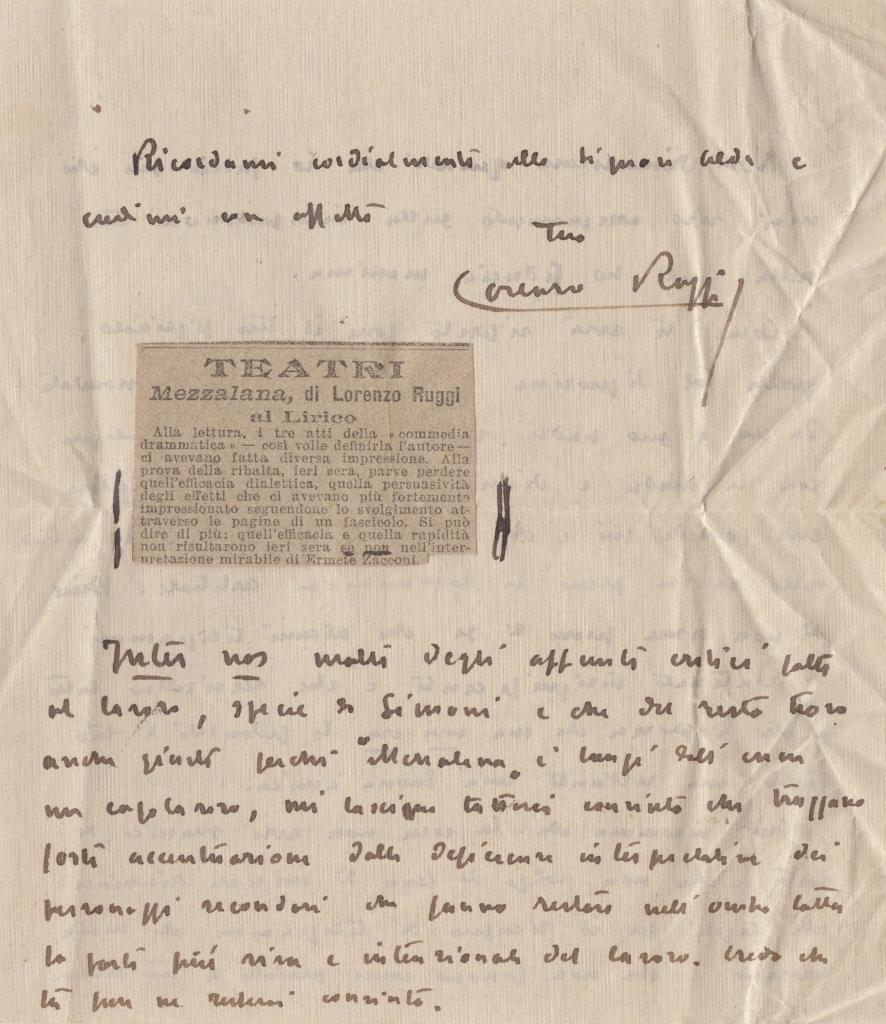 Ricordami cordialmente alla signora Alda e
credimi con affetto
Tuo
Lorenzo Ruggi
TEATRI
Mezzalana, di Lorenzo Ruggi
al Lirico
Alla lettura, i tre atti della « commedia
drammatica » — così volle definirla l'autore —
ci avevano fatta diversa impressione. Alla
prova della ribalta, ieri sera, parve perdere
quell'efficacia dialettica, quella persuasività
degli effetti che ci avevano più fortemente
impressionato seguendone lo svolgimento at-
traverso le pagine di un fascicolo. Si può
dire di più: quell'efficacia e quella rapidità
non risultarono ieri sera se non nell'inter-
pretazione mirabile di Ermete Zacconi.
Inter nos molti degli appunti critici fatti
al lavoro, specie da Simoni e che del resto trovo
anche giusti perchè "Mezzalana" è lungi dall'esser
un capolavoro, mi lasciano tuttavia convinto che traggano
forte accentuazione dalla deficienza interpretativa dei
personaggi secondari che fanno restare nell'ombra tutta
la parte più viva e intenzionale del lavoro. Credo che
tu pure ne resterai convinto.